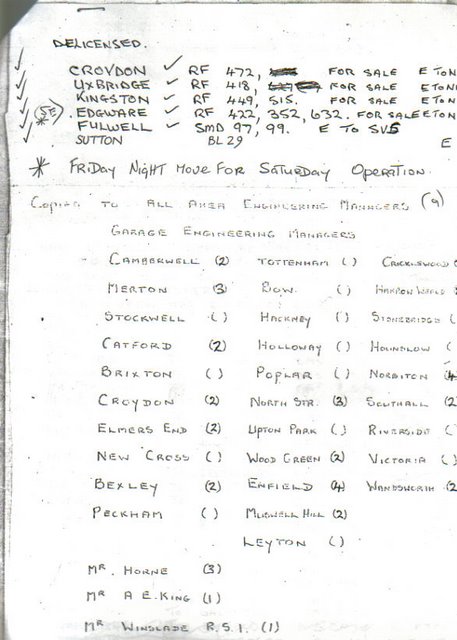 DELICENSED.
CROYDON ✓ RF 472, FOR SALE E TON
UXBRIDGE ✓ RF 418, FOR SALE E TON
KINGSTON ✓ RF 449, 515. FOR SALE E TON
* SE EDGWARE ✓ RF 422, 352, 632. FOR SALE E TON
FULWELL ✓ SMD 97, 99. E TO SVS
SUTTON BL 29 E
* FRIDAY NIGHT MOVE FOR SATURDAY OPERATION.
COPIES TO ALL AREA ENGINEERING MANAGERS (9)
GARAGE ENGINEERING MANAGERS
CAMBERWELL (2) TOTTENHAM ( ) CRICKLEWOOD (
MERTON (3) BOW. ( ) HARROW WEALD (
STOCKWELL ( ) HACKNEY ( ) STONEBRIDGE (
CATFORD (2) HOLLOWAY ( ) HOUNSLOW (
BRIXTON ( ) POPLAR ( ) NORBITON (4
CROYDON (2) NORTH STR. (3) SOUTHALL (2
ELMERS END (2) UPTON PARK ( ) RIVERSIDE (
NEW CROSS ( ) WOOD GREEN (2) VICTORIA ( )
BEXLEY (2) ENFIELD (4) WANDSWORTH (2
PECKHAM ( ) MUSWELL HILL (2)
LEYTON ( )
MR. HORNE (3)
MR A E. KING (1)
MR WINSLADE R.S.I. (1)